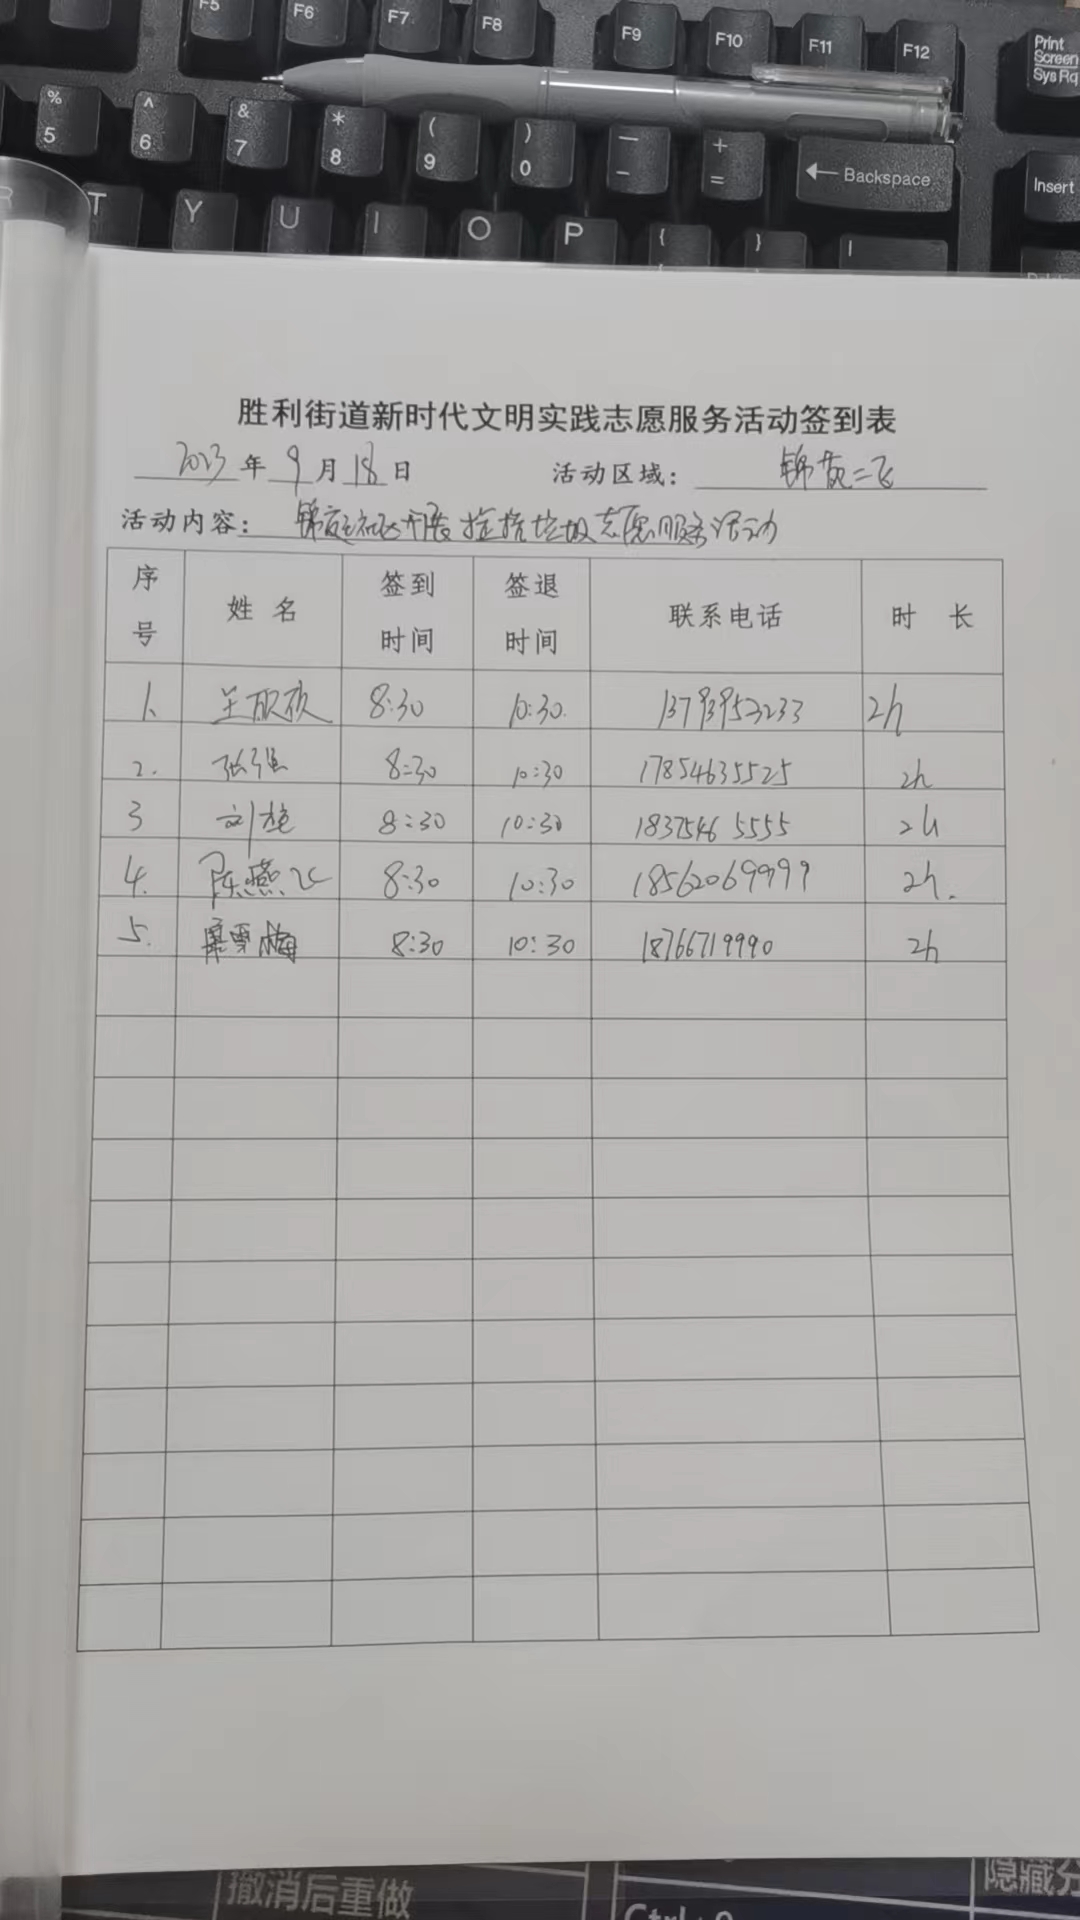 F5 F6 F7 F8 F9 F10 F11 F12 Print Screen SysRq
% 5 ^ 6 & 7 * 8 ( 9 ) 0 — - + = ← Backspace Insert
R T Y U I O P { } |
胜利街道新时代文明实践志愿服务活动签到表
2023 年 9 月 18 日 活动区域: 锦苑二
活动内容: 锦苑社区开展捡拾垃圾志愿服务活动
序号 姓名 签到时间 签退时间 联系电话 时长
1. 8:30 10:30. 13793953233 2h
2. 张强 8:30 10:30 17854635525 2h
3 刘艳 8:30 10:30 18375465555 2h
4. 陈燕飞 8:30 10:30 18562069999 2h.
5. 雪梅 8:30 10:30 18766719990 2h
撤消后重做 隐藏
Ctrl+9